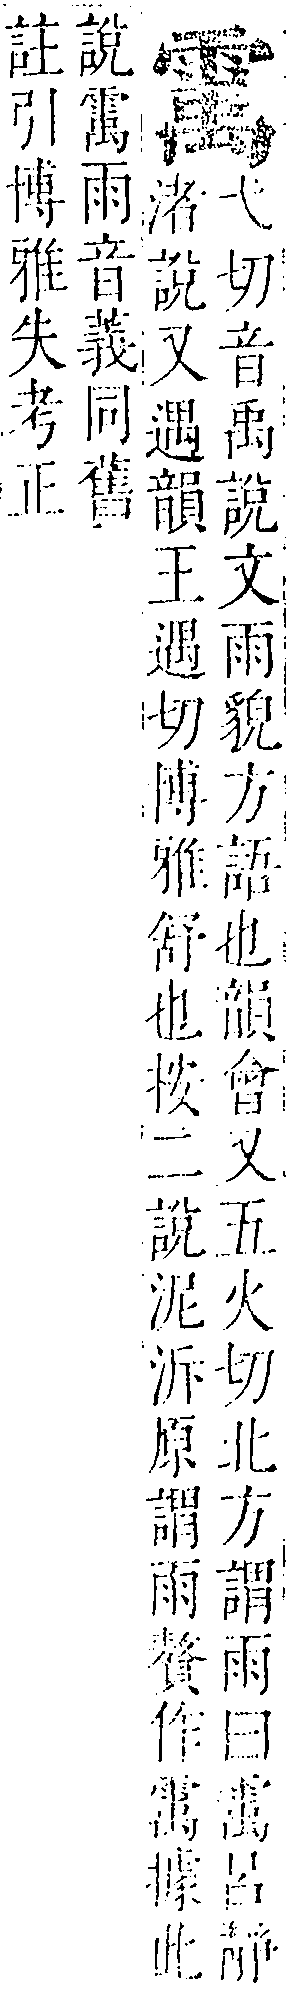 䨞
弋切音禹說文雨貌方語也韻會又五火切北方謂雨曰䨞呂靜
渚說又遇韻王遇切博雅舒也按二說泥泝原謂雨賛作䨞據此
說䨞雨音義同舊
註引博雅失考正